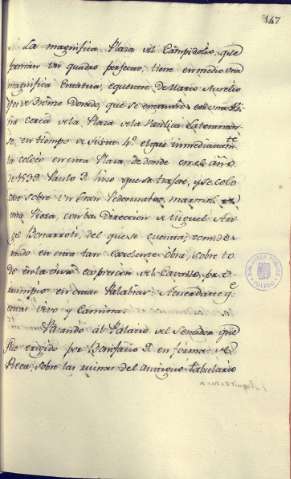 147
La magnifica Plaza del Campidolio, que
forma un quadro perfecto, tiene en medio una
magnifica Estatua equestre de Marco Aurelio
de Bronze Dorado, que se encontró
cerca de la Plaza de la Basilica Lateranen
se, en tiempo de Sixto 4º el que inmediatamte
colocó en esta Plaza, de donde en el año
de 1538 Paulo 3 hizo que se trasfiriese, y se colo
case sobre un Gran Pedestal de marmol en
esta Plaza, con la Direccion de Miguel An
gel Bonarroti, del que se cuenta, como
en esta tan excelente obra, sobre to
do en la viva expresion del Cavallo, pro
rrumpió en estas Palabras: Acuerdate qe
estas vivo y Camina
Pasando al Palacio del Senador que
fue erigido por Bonifacio 9 en forma de
sobre las ruinas del antiguo Tabulario